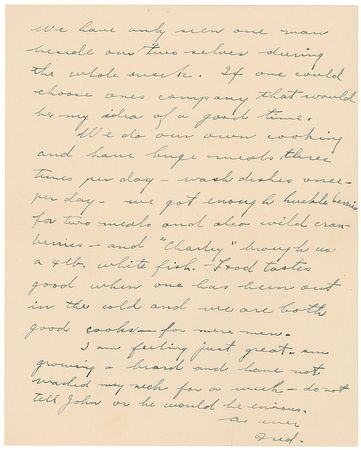 We have only seen one man
beside our two selves during
the whole week. If one could
choose ones company that would
be my idea of a good time.
We do our own cooking
and have huge meals three
times per day - wash dishes once
per day - we got enough huckleberries
for two meals and also wild cran-
berries - and "Charley" brough us
a 4lb. white fish. Food tastes
good when one has been out
in the cold and we are both
good cooks - for mere men.
I am feeling just great - am
growing a beard and have not
washed my neck for a week - do not
tell John or he would be envious.
As ever
Fred.